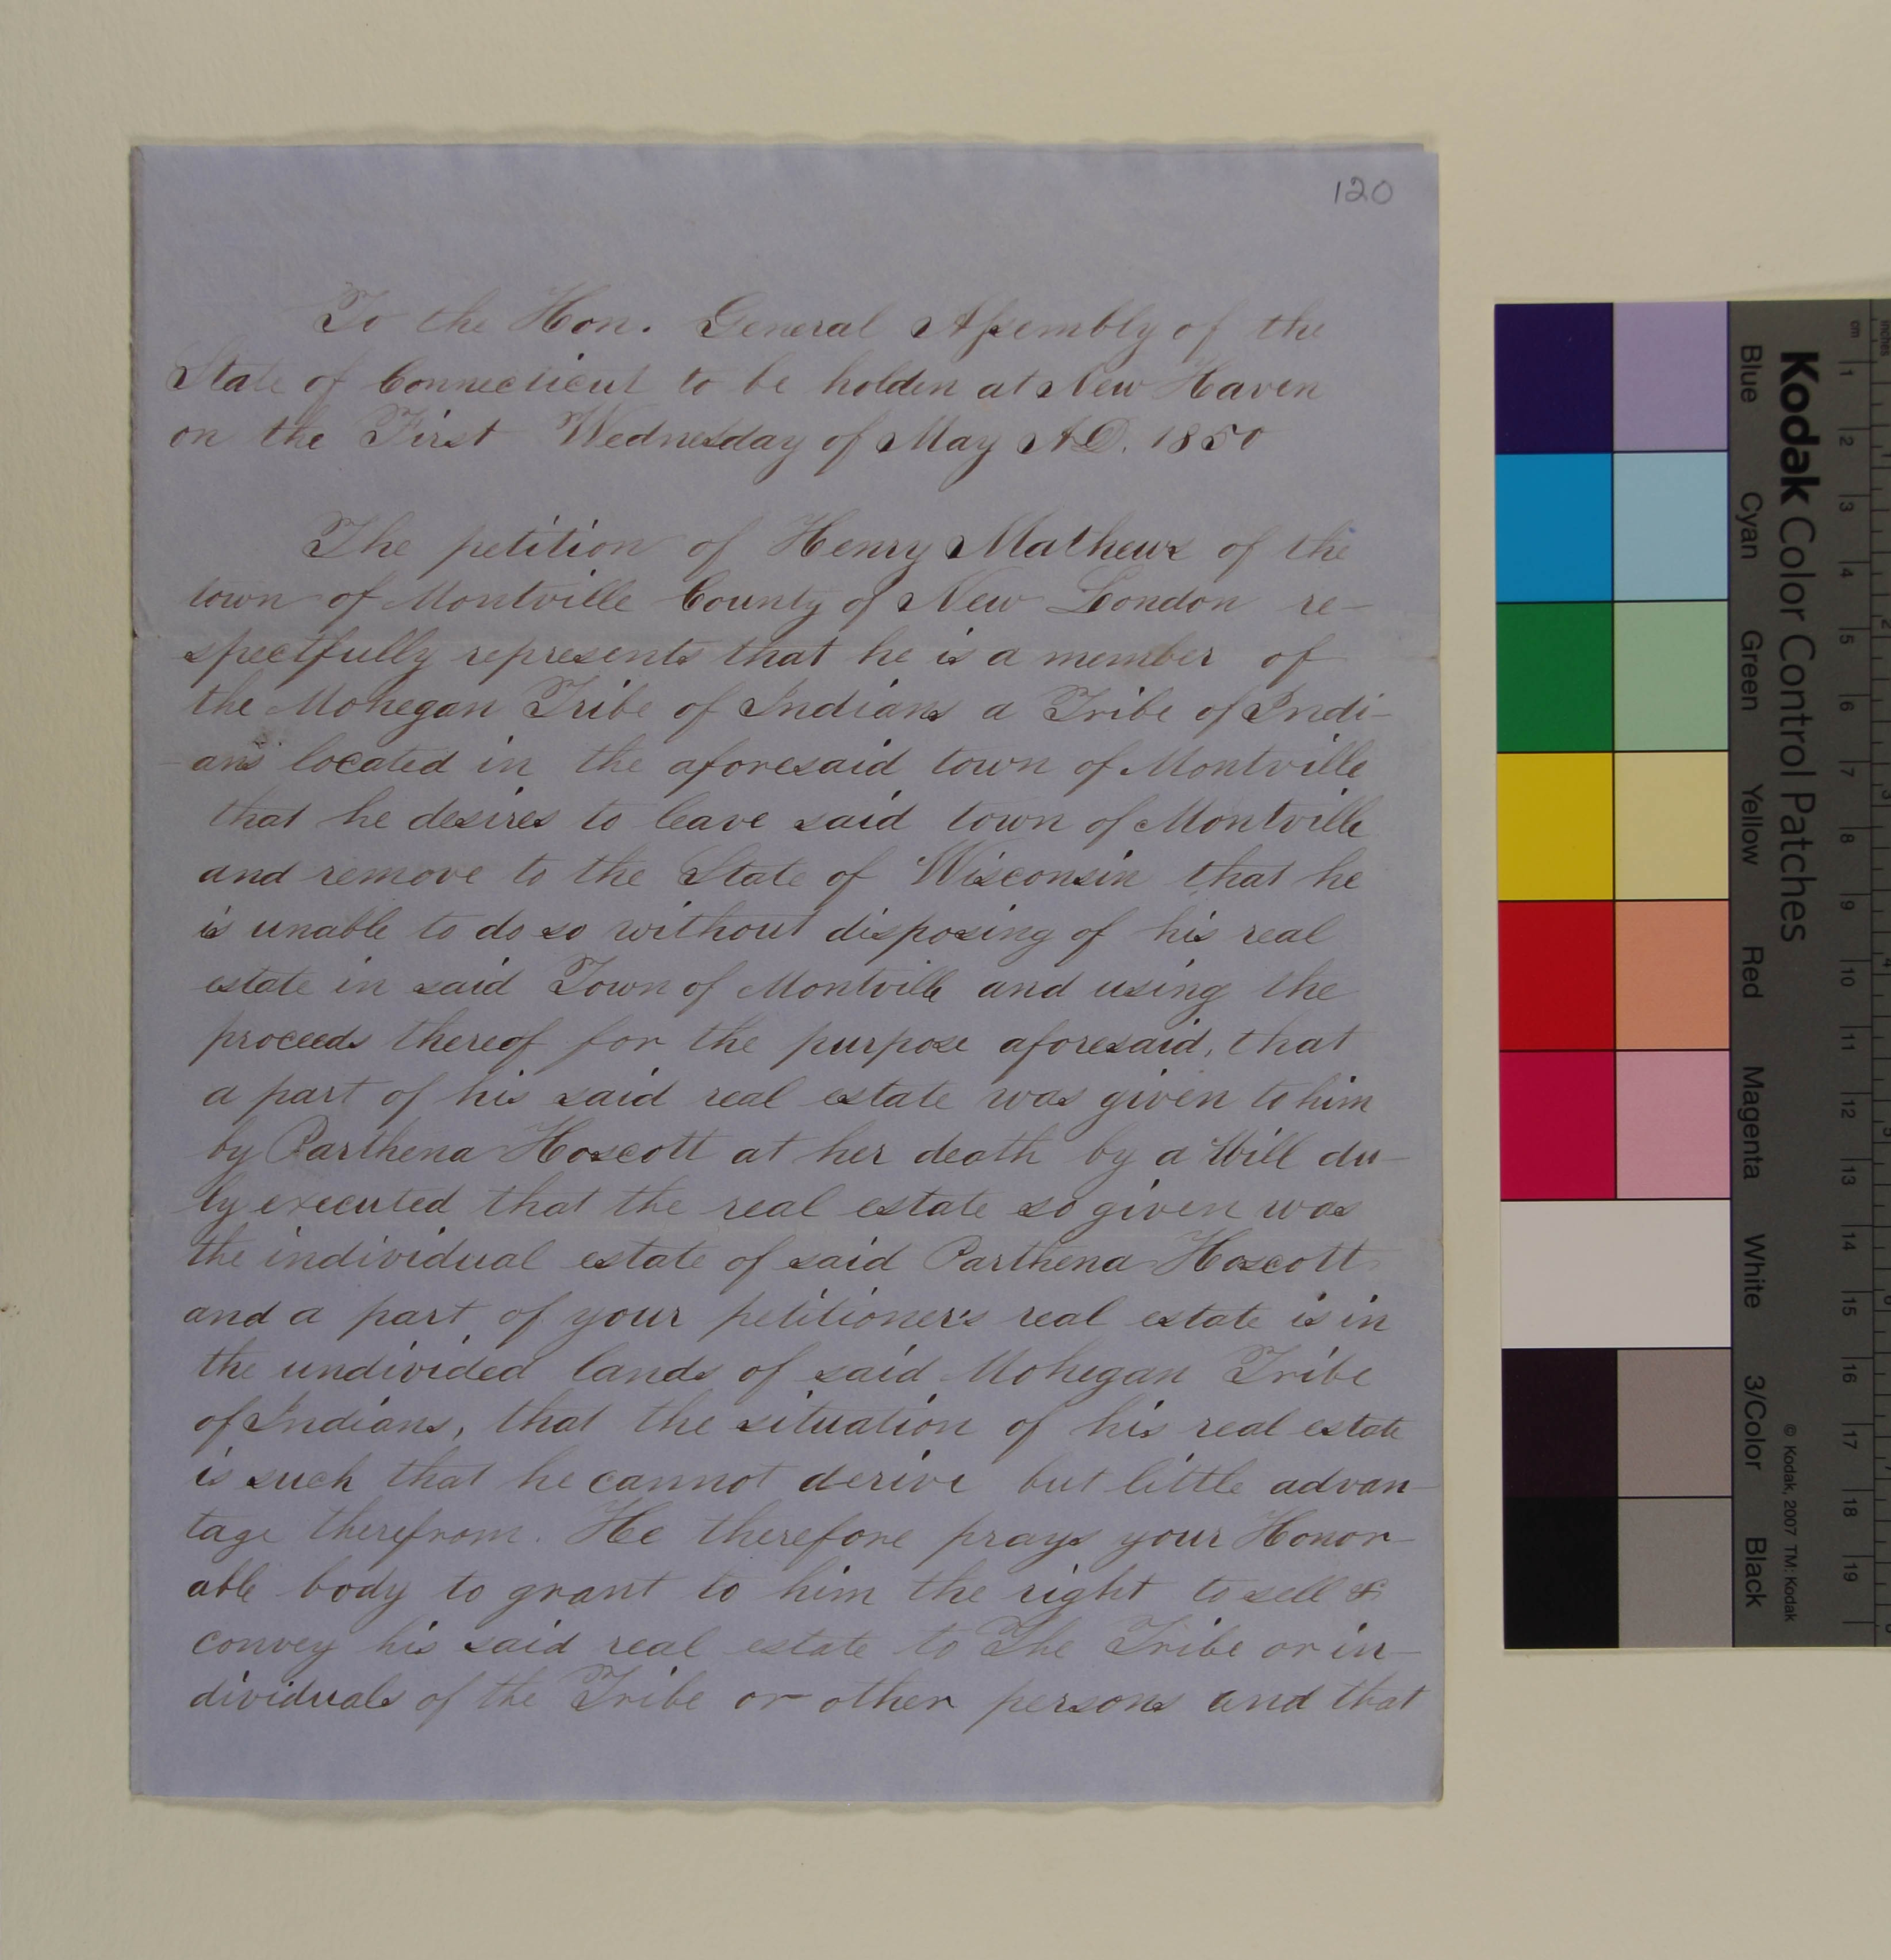 120
To the Hon. General Assembly of the
State of Connecticut to be holden at New Haven
on the First Wednesday of May A.D. 1850
The petition of Henry Mathews of the
town of Montville County of New London re-
spectfully represents that he is a member of
the Mohegan Tribe of Indians a Tribe of Indi-
-ans located in the aforesaid town of Montville
that he desires to leave said town of Montville
and remove to the State of Wisconsin that he
is unable to do so without disposing of his real
estate in said Town of Montville and using the
proceeds thereof for the purpose aforesaid, that
a part of his said real estate was given to him
by Parthena Hoscott at her death by a Will du-
ly executed that the real estate so given was
the individual estate of said Parthena Hoscott
and a part of your petitioner's real estate is in
the undivided lands of said Mohegan Tribe
of Indians, that the situation of his real estate
is such that he cannot derive but little advan-
tage therefrom. He therefore prays your Honor-
able body to grant to him the right to sell &
convey his said real estate to The Tribe or in-
dividuals of the Tribe or other persons and that
Kodak Color Control Patches
© Kodak, 2007 TM: Kodak
Blue Cyan Green Yellow Red Magenta White 3/Color Black
cm 1 2 3 4 5 6 7 8 9 10 11 12 13 14 15 16 17 18 19
inches 1 2 3 4 5 6 7 8